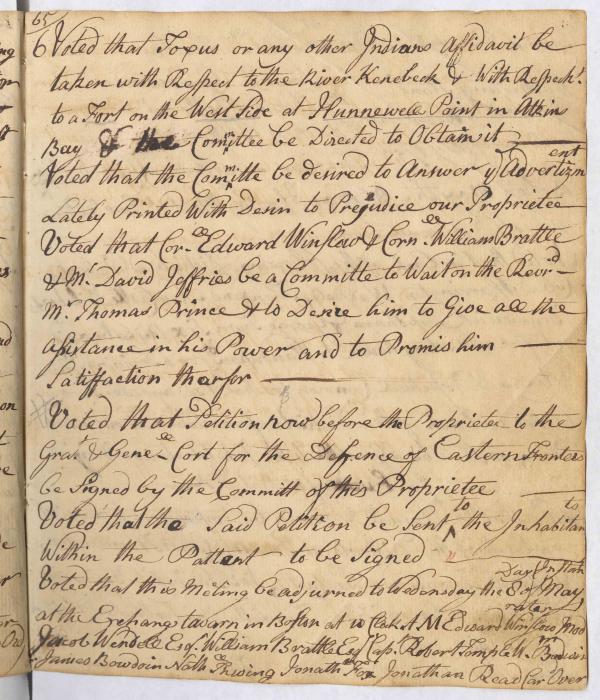 65
6 Voted that Toxus or any other Indians Affidavit be
taken with Respect to the River Kenebeck & With Respect
to a Fort on the West Side at Hunnewells Point in Atkins
Bay & the Comittee be Directed to Obtain it
Voted that the Comitte be desired to Answer ye Advertizment
Lately Printed With Desin to Prejudice our Proprietee
Voted that Cor.ll Edward Winslow & Corn.ll William Brattle
& Mr David Jeffries be a Committe to Wait on the Revrd
Mr Thomas Prince & to Desire him to Give all the
assistance in his Power and to Promis him
Satiffaction tharfor
Voted that Petition now before the Proprietee to the
Grat & Genell Cort for the Defence of Eastern Fronteer
be Signed by the Committ of this Proprietee
Voted that the Said Petition be Sent to the Inhabitants
Within the Pattent to be Signed
Voted that this Meeting be adjurned to Wedensday the 8 Day of May Instant
at the Exchange tavarn in Boston at 10 Clak A M Edward Winslow Modrator
Jacob Wendell Esqr William Brattle Esqr Capt Robert Temple Mr Bowdoin
James Bowdoin Nathll Thwing Jonath Fox Jonathan Reed Car Over